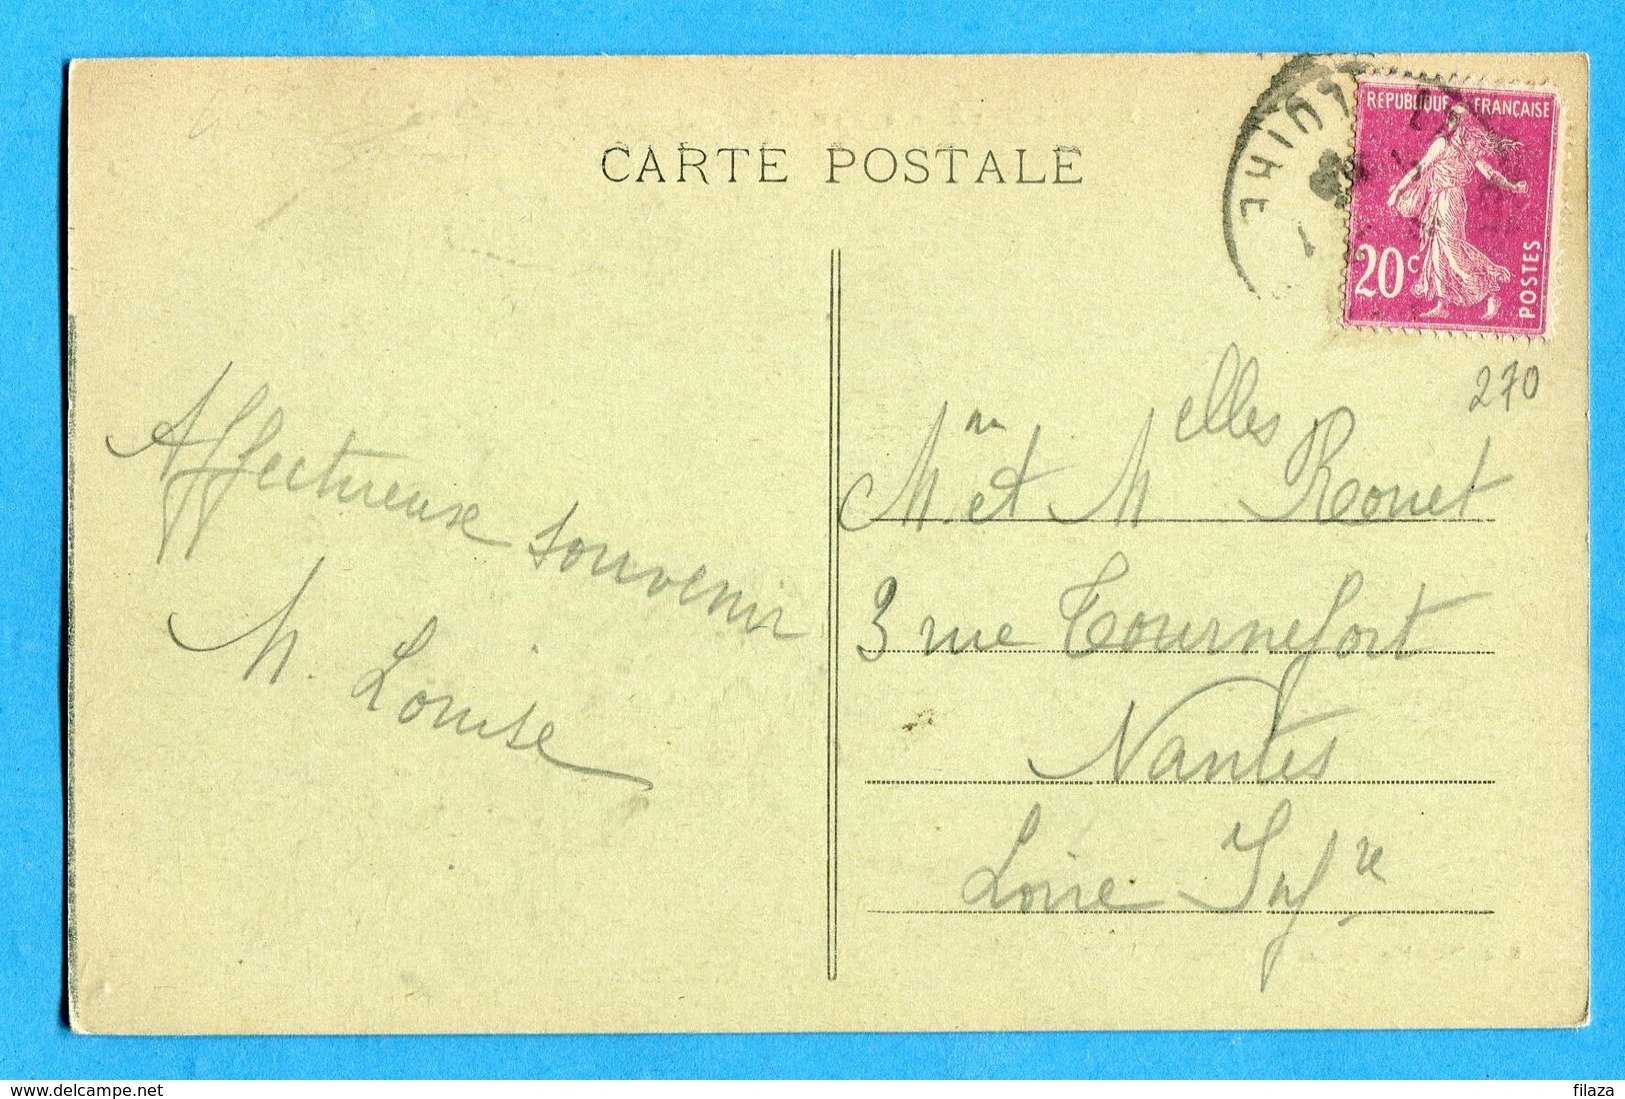 CARTE POSTALE
REPUBLIQUE FRANÇAISE
20c
POSTES
270
Affectueuse souvenir
M. Louise
Mme et Melles Rouet
3 rue Tournefort
Nantes
Loire Infre
delcampe.net
filaza